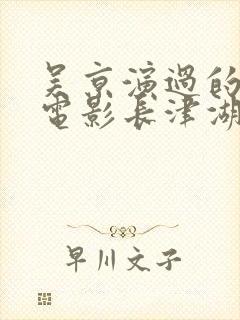 吴京演過的
電影長津湖
早川文子